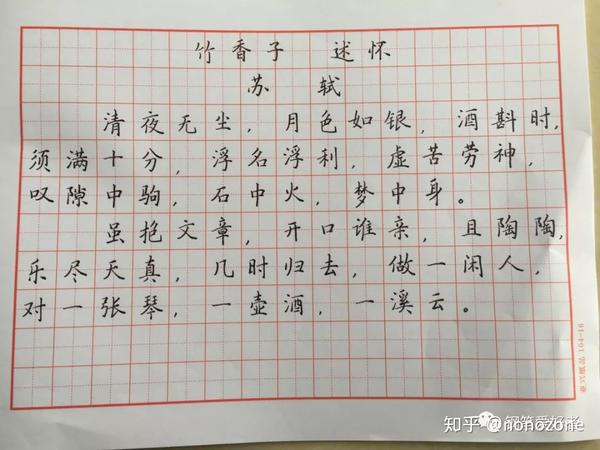 竹香子 述怀
苏 轼
清夜无尘，月色如银，酒斟时，
须满十分，浮名浮利，虚苦劳神，
叹隙中驹，石中火，梦中身。
虽抱文章，开口谁亲，且陶陶，
乐尽天真，几时归去，做一闲人，
对一张琴，一壶酒，一溪云。
钢笔爱好者
知乎 @nonozone